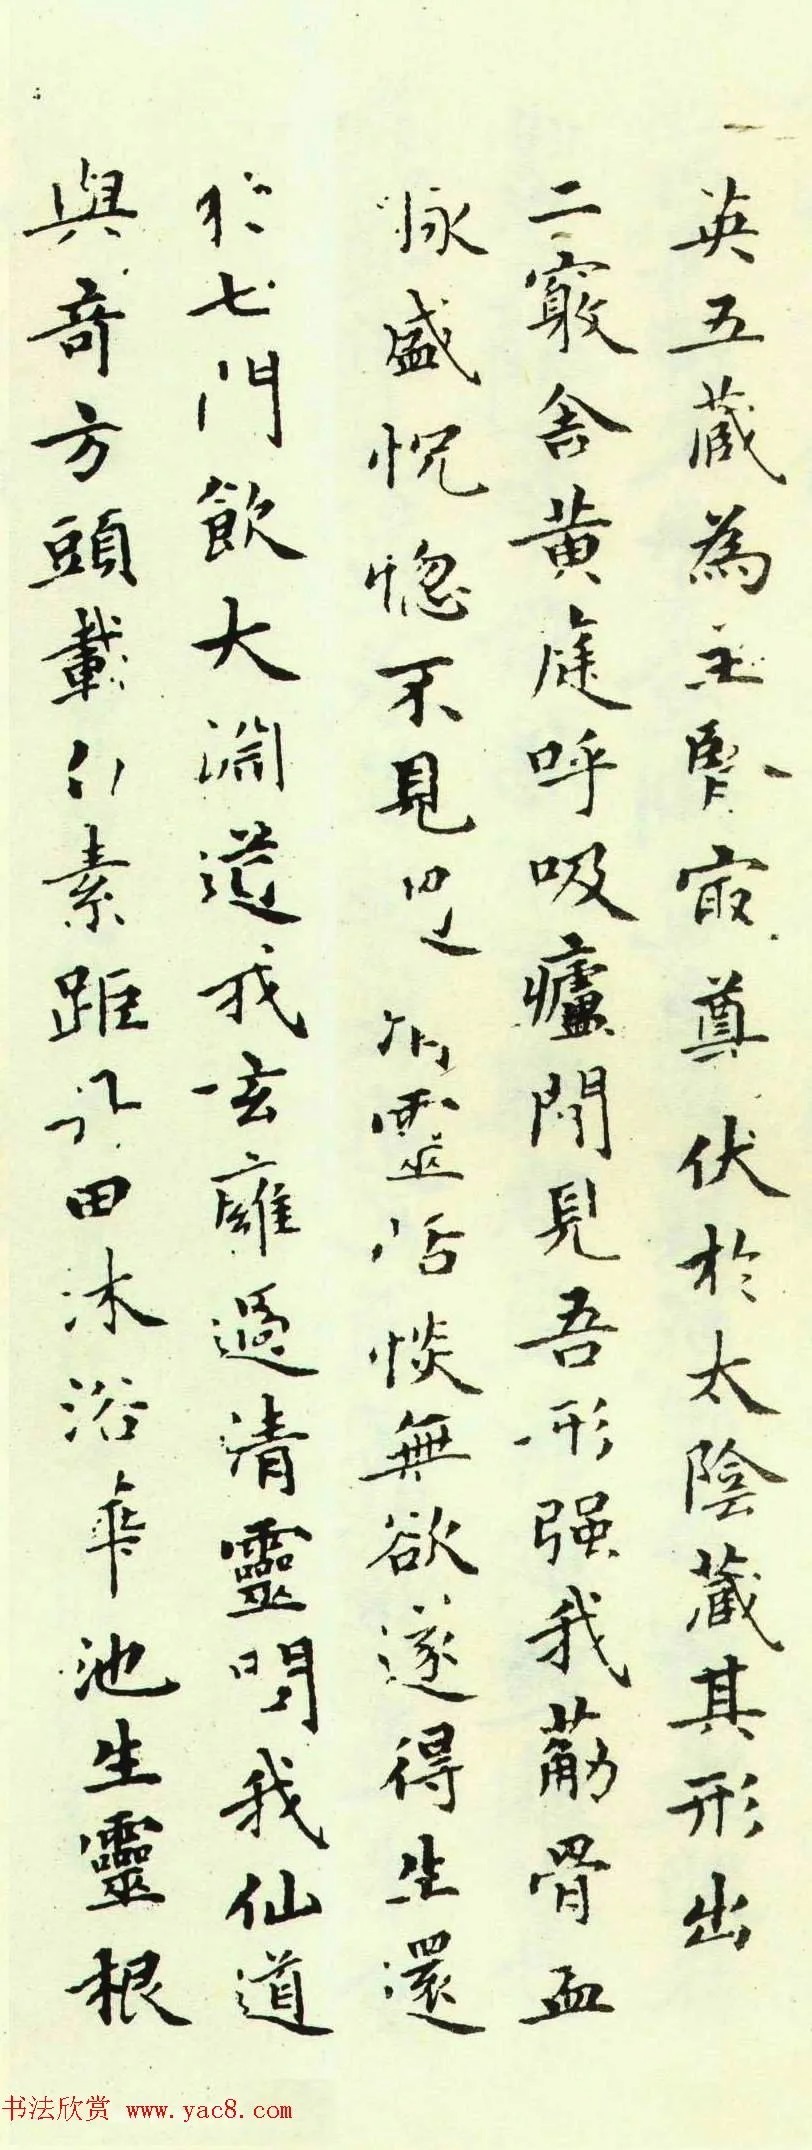 英五藏為主腎㝡尊伏於太陰藏其形出
二竅舍黄庭呼吸廬間見吾形强我筋骨血
脉盛怳惚不見過清靈恬惔無欲遂得生還
於七門飲大淵道我玄雍過清靈問我仙道
與奇方頭載白素距丹田沐浴華池生靈根
书法欣赏 www.yac8.com